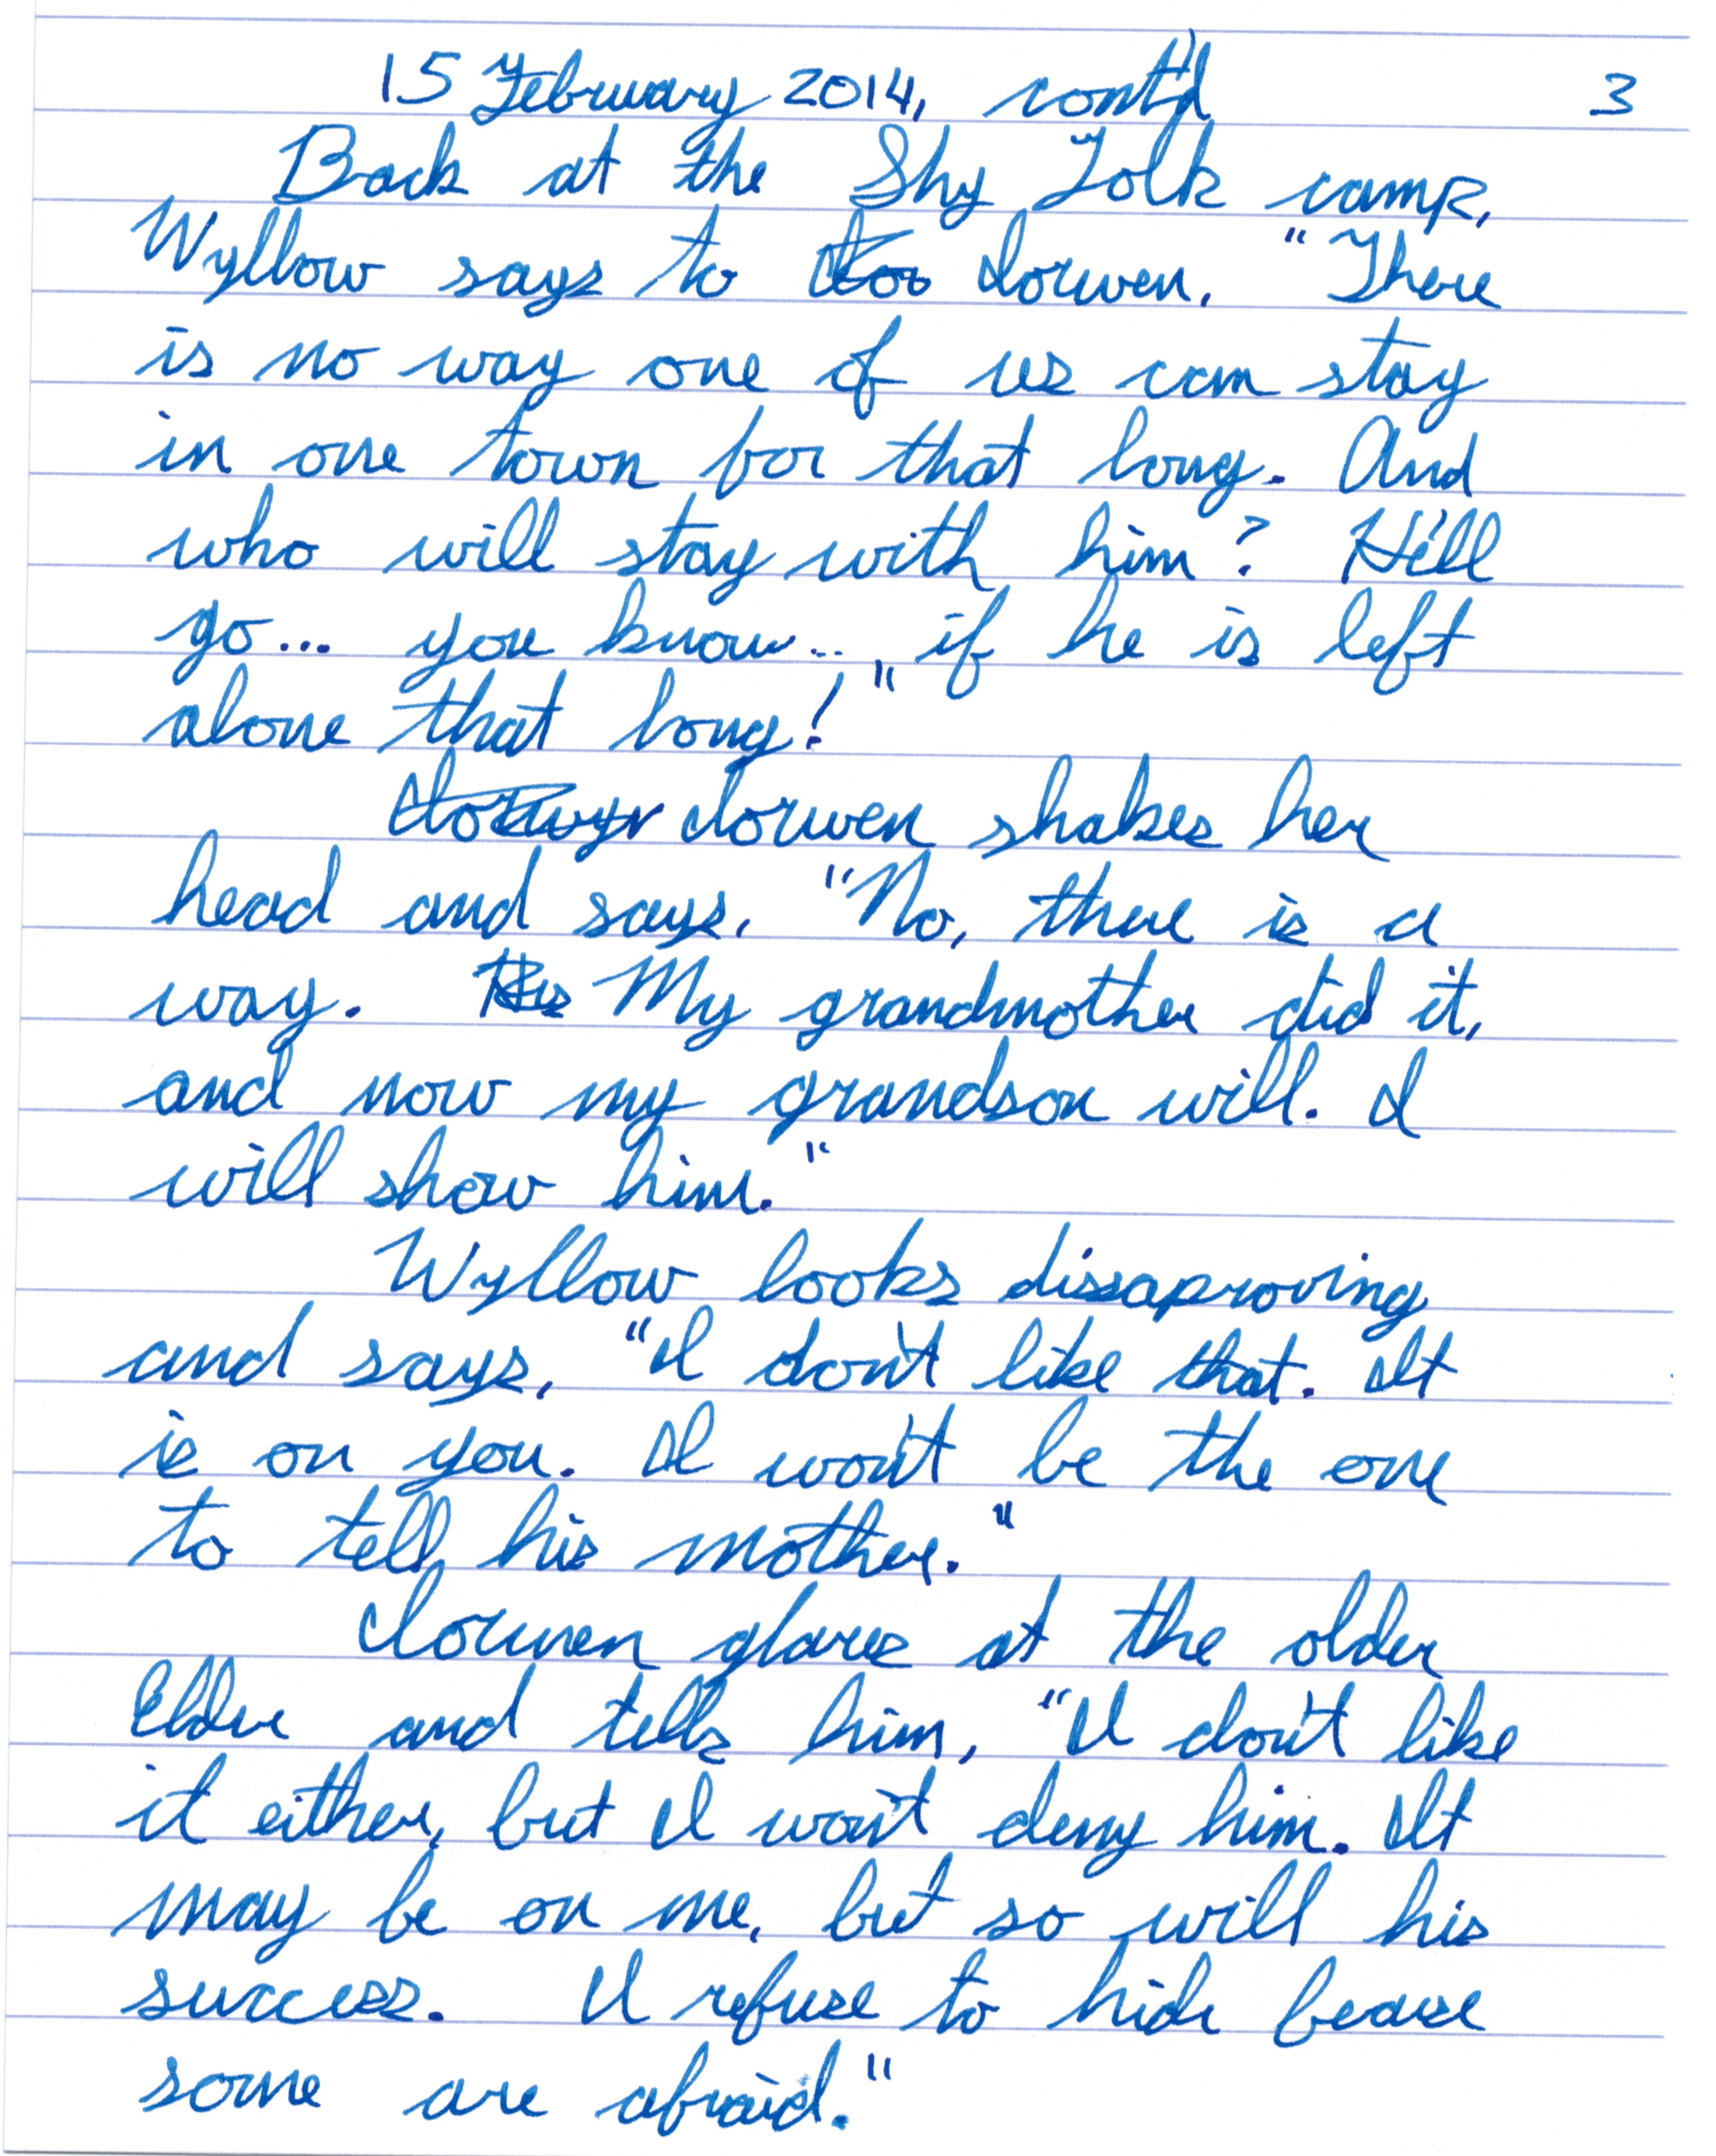 15 February 2014, cont'd 3
Back at the Shy Folk camp,
Wyllow says to Iorwen, "There
is no way one of us can stay
in one town for that long. And
who will stay with him? He'll
go... you know... if he is left
alone that long!"
Iorwen shakes her
head and says, "No, there is a
way. My grandmother did it,
and now my grandson will. I
will show him."
Wyllow looks dissaproving
and says, "I don't like that. It
is on you. I won't be the one
to tell his mother."
Iorwen glares at the older
Elder and tells him, "I don't like
it either, but I won't deny him. It
may be on me, but so will his
success. I refuse to hide becaus
some are afraid."